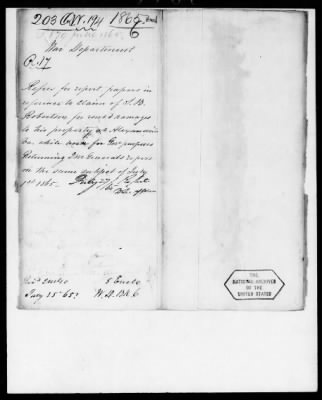 203 C.W. 194 1865
6
War Department
R.17
Refers for report papers in
reference to claim of S.B.
Robertson for rent & damages
to his property at Alexandria
Va. while used for Gov purposes
Returning Genera's report
on the same subject of July
1st 1865.
July 25 65. W.D.BK. 6
5 Encls
THE
NATIONAL ARCHIVES
OF THE
UNITED STATES